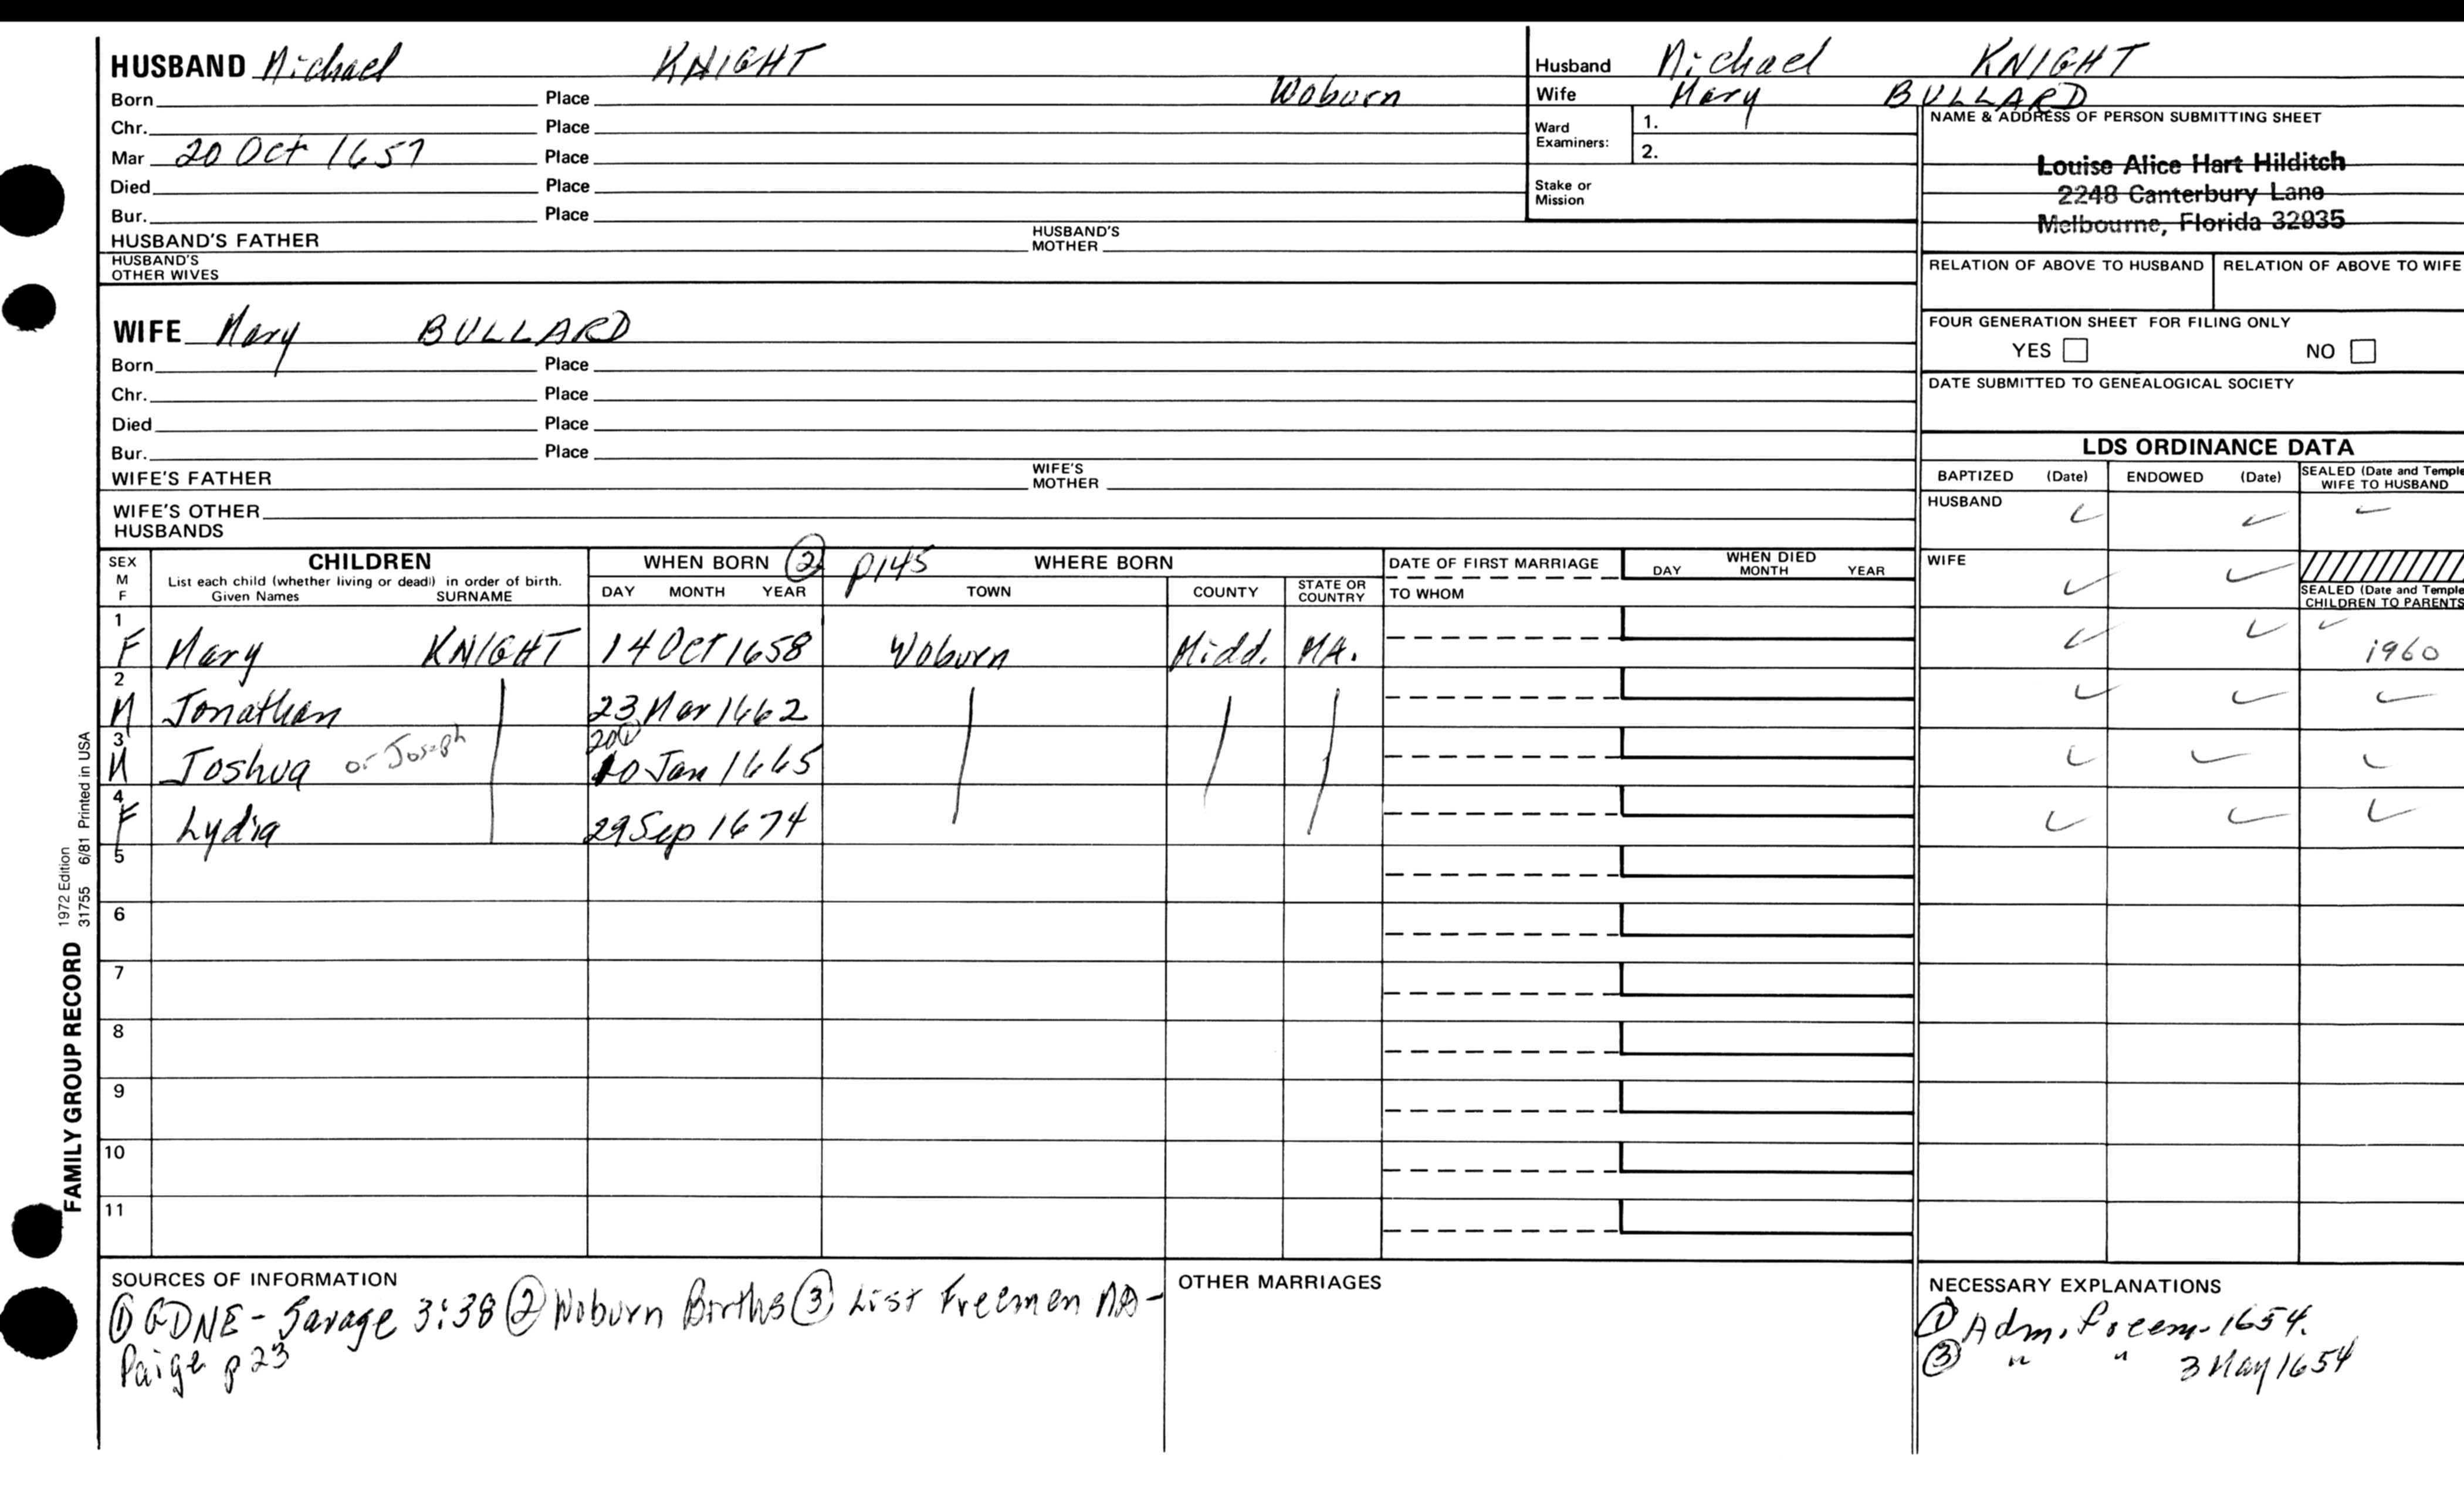 HUSBAND Michael KNIGHT
Born Place Woburn
Chr. Place
Mar 20 Oct 1657 Place
Died Place
Bur. Place
HUSBAND'S FATHER HUSBAND'S MOTHER
HUSBAND'S OTHER WIVES
Husband Michael KNIGHT
Wife Mary BULLARD
Ward Examiners: 1.
2.
Stake or Mission
NAME & ADDRESS OF PERSON SUBMITTING SHEET
Louise Alice Hart Hilditch
2248 Canterbury Lane
Melbourne, Florida 32935
RELATION OF ABOVE TO HUSBAND RELATION OF ABOVE TO WIFE
FOUR GENERATION SHEET FOR FILING ONLY
YES NO
DATE SUBMITTED TO GENEALOGICAL SOCIETY
WIFE Mary BULLARD
Born Place
Chr. Place
Died Place
Bur. Place
WIFE'S FATHER WIFE'S MOTHER
WIFE'S OTHER HUSBANDS
LDS ORDINANCE DATA
BAPTIZED (Date) ENDOWED (Date) SEALED (Date and Temple WIFE TO HUSBAND
HUSBAND ✓ ✓ ✓
WIFE ✓ ✓
SEALED (Date and Temple CHILDREN TO PARENTS
SEX M F CHILDREN WHEN BORN ② p145 WHERE BORN DATE OF FIRST MARRIAGE WHEN DIED
List each child (whether living or dead) in order of birth.
Given Names SURNAME DAY MONTH YEAR TOWN COUNTY STATE OR COUNTRY TO WHOM DAY MONTH YEAR
1 F Mary KNIGHT 14 Oct 1658 Woburn Midd. MA. ✓ ✓ ✓ 1960
2 M Jonathan 23 Mar 1662 ✓ ✓ ✓
3 M Joshua or Joseph 20① 10 Jan 1665 ✓ ✓ ✓
4 F Lydia 29 Sep 1674 ✓ ✓ ✓
5
6
7
8
9
10
11
FAMILY GROUP RECORD 1972 Edition
31755 6/81 Printed in USA
SOURCES OF INFORMATION
① GDNE - Savage 3:38 ② Woburn Births ③ List Freemen MA -
Paige p 23
OTHER MARRIAGES
NECESSARY EXPLANATIONS
① Adm. Freem. 1654.
③ " " 3 May 1654